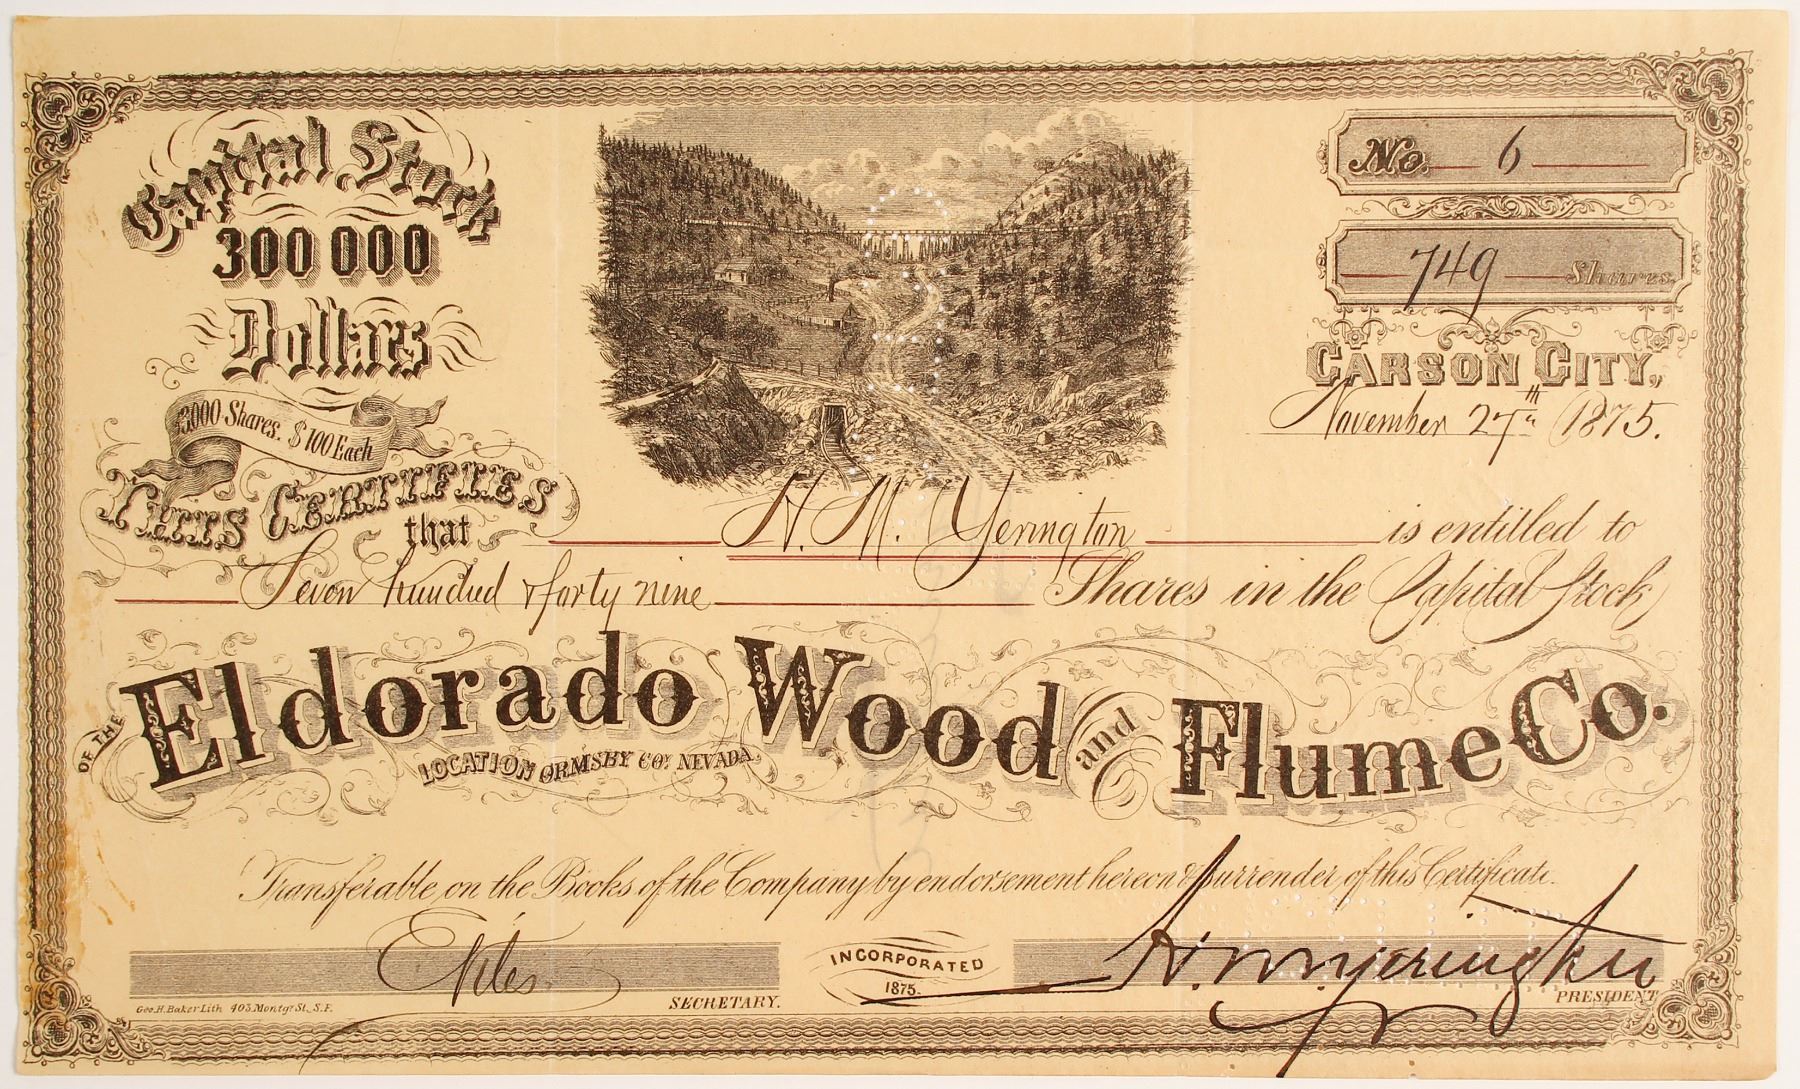 Capital Stock
300 000
Dollars
3000 Shares. $100 Each
No. 6
749 Shares.
CARSON CITY,
November 27th 1875.
THIS CERTIFIES
that H. M. Yerington is entitled to
Seven hundred & forty nine Shares in the Capital Stock
OF THE Eldorado Wood and Flume Co.
LOCATION ORMSBY CO. NEVADA.
Transferable on the Books of the Company by endorsement hereon & Surrender of this Certificate.
INCORPORATED
1875.
H. M. Yerington
SECRETARY.
PRESIDENT
Geo. H. Baker Lith 403 Montgy St. S.F.